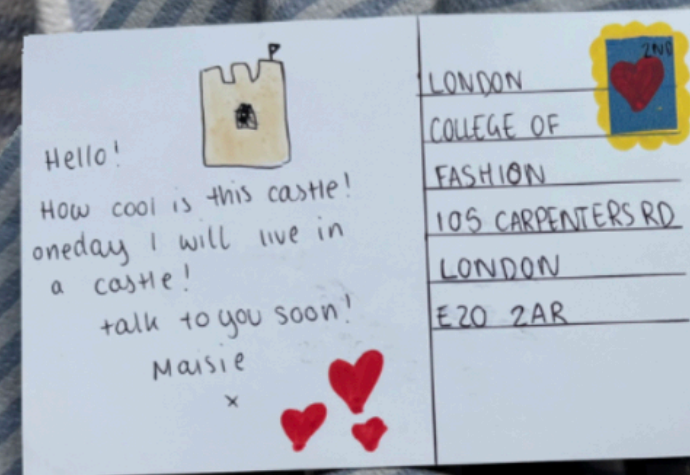 Hello!
How cool is this castle!
oneday I will live in
a castle!
talk to you soon!
Maisie
x
2ND
LONDON
COLLEGE OF
FASHION
105 CARPENTERS RD
LONDON
E20 2AR